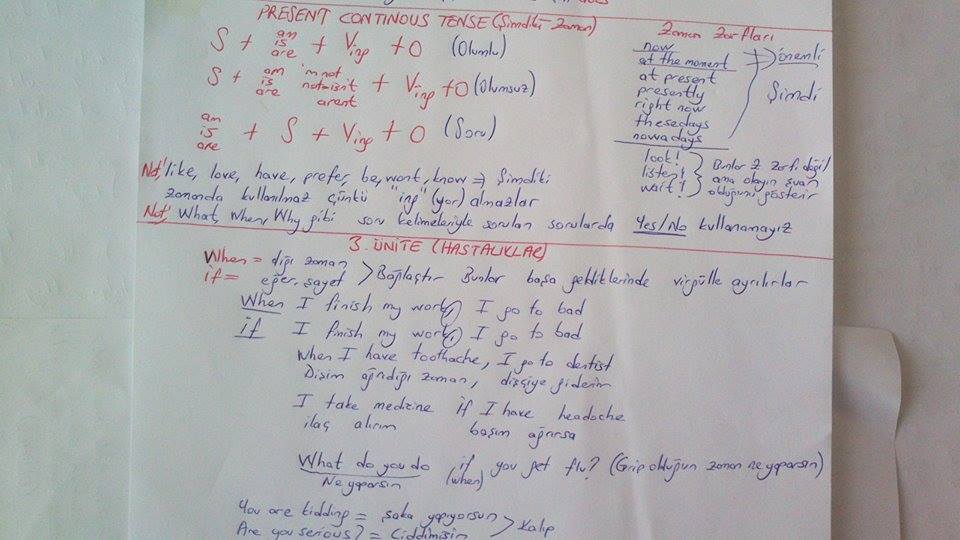 PRESENT CONTINOUS TENSE (Şimdiki Zaman)
Zaman Zarfları
S + am is are + Ving + O (Olumlu)
S + am is are 'm not not=isn't arent + Ving + O (Olumsuz)
am is are + S + Ving + O (Soru)
now
at the moment
önemli
at present
presently
right now
thesedays
nowadays
Şimdi
look!
listen!
wait!
Bunlar Z zarfı değil
ama olayın şuan
olduğunu gösterir
Not! like, love, have, prefer be, want, know ⇒ Şimdiki
zamanda kullanılmaz çünkü "ing" (yor) almazlar
Not! What, When, Why gibi soru kelimeleriyle sorulan sorularda Yes/No kullanamayız
3. ÜNİTE (HASTALIKLAR)
When = dığı zaman
if = eğer, şayet > Bağlaçtır Bunlar başa geldiklerinde virgülle ayrılırlar
When I finish my work, I go to bad
if I finish my work, I go to bad
When I have toothache, I go to dentist
Dişim ağrıdığı zaman, dişçiye giderim
I take medicine if I have headache
ilaç alırım başım ağrırsa
What do you do if you get flu? (Grip olduğun zaman ne yaparsın)
Ne yaparsın (when)
You are kidding = şaka yapıyorsun > Kalıp
Are you serious? = Ciddimisin